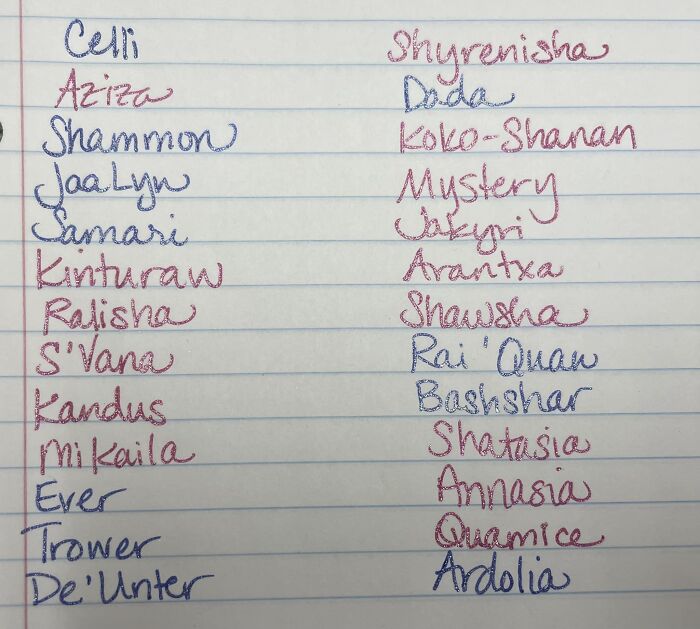 Celli
Aziza
Shammon
JaaLyn
Samari
Kinturaw
Ralisha
S'Vana
Kandus
Mikaila
Ever
Trower
De'Unter
Shyrenisha
Dada
Koko-Shanan
Mystery
Jakyri
Arantxa
Shawsha
Rai'Quan
Bashshar
Shatasia
Annasia
Quamice
Ardolia